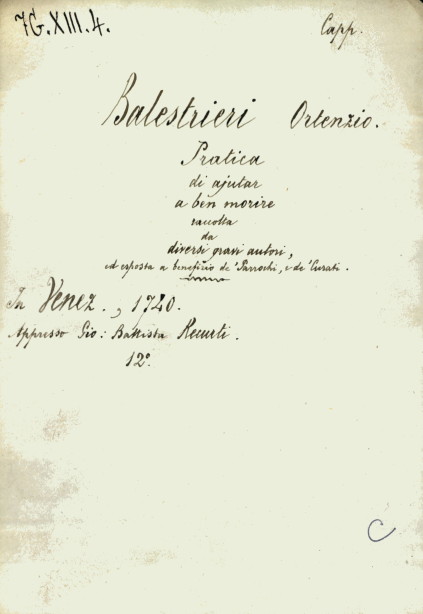 7G.XIII.4.
Capp.
Balestrieri Ortenzio.
Pratica
di ajutar
a ben morire
raccolta
da
diversi gravi autori,
ed esposta a beneficio de' Parrochi, e de' Curati.
In Venez., 1740.
Appresso Gio: Battista Recurti.
12°.
C